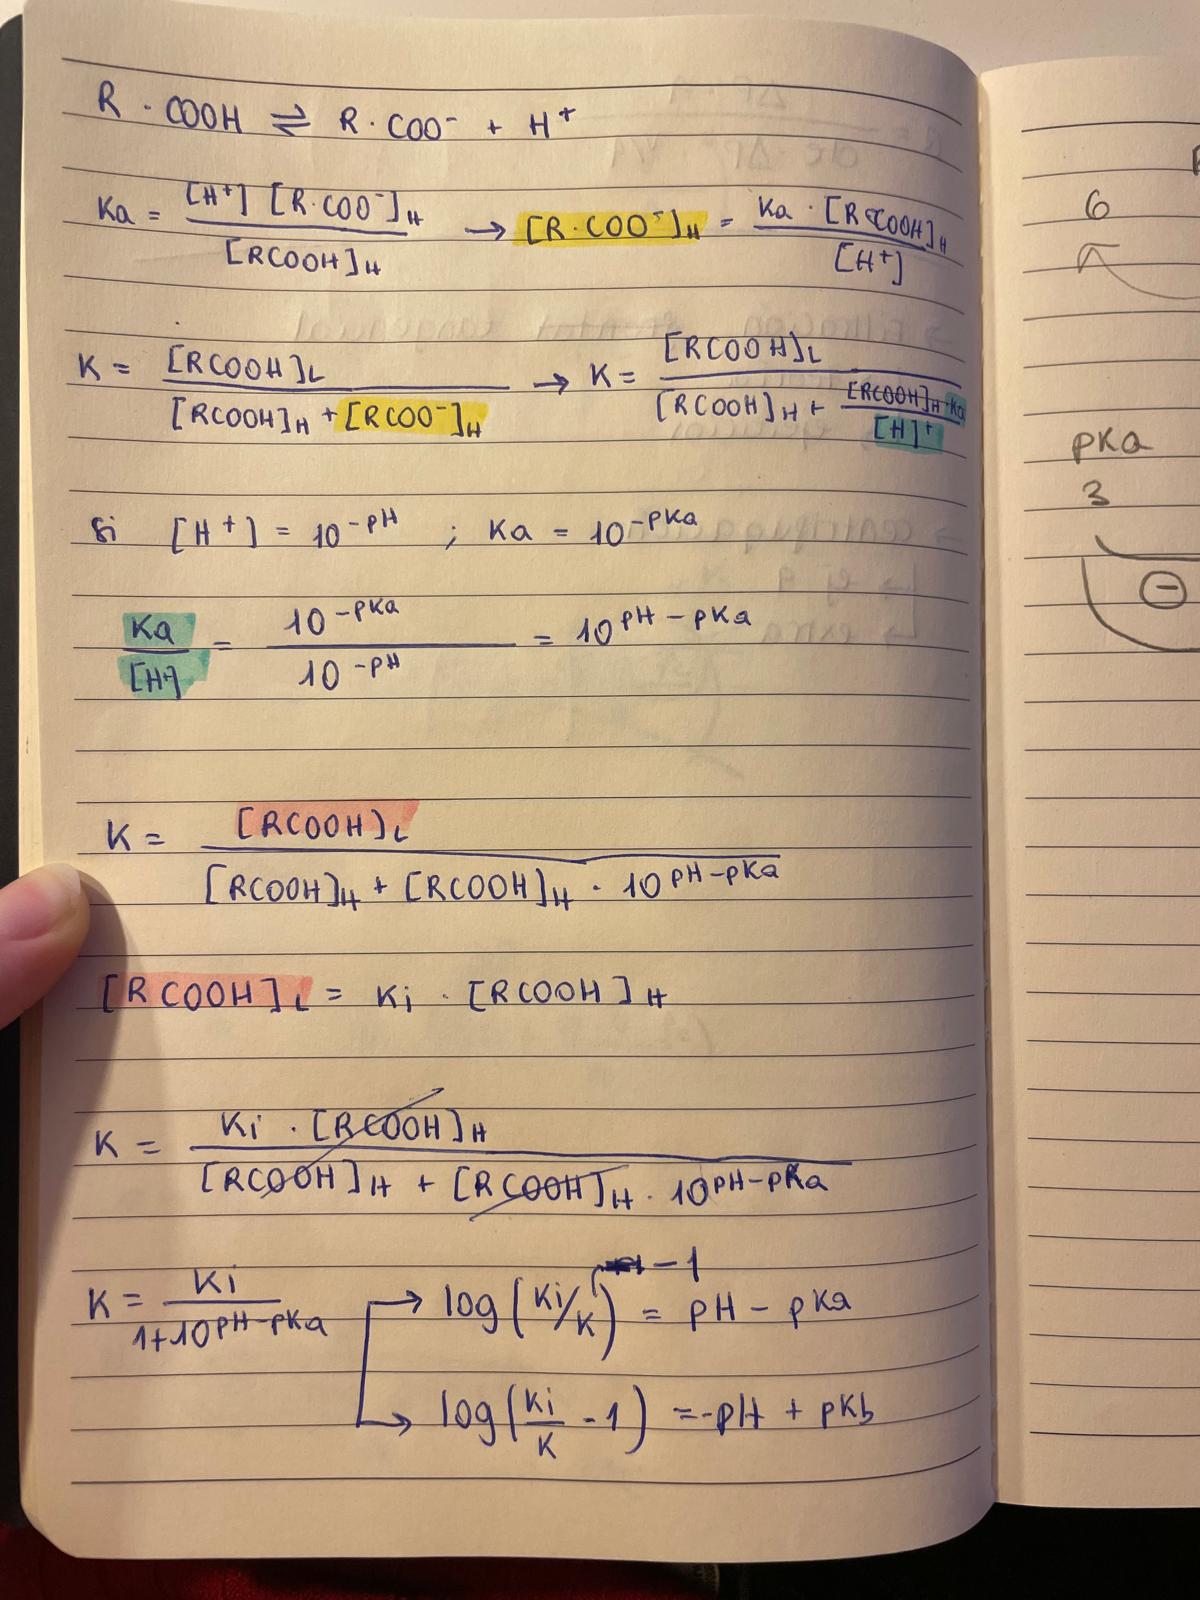 R · COOH ⇌ R · COO⁻ + H⁺
Ka = [H⁺] [R·COO⁻]H / [RCOOH]H → [R·COO⁻]H = Ka · [RCOOH]H / [H⁺]
K = [RCOOH]L / [RCOOH]H + [RCOO⁻]H → K = [RCOOH]L / [RCOOH]H + [RCOOH]H · Ka / [H]⁺
Si [H⁺] = 10^-pH ; Ka = 10^-pKa
Ka / [H⁺] = 10^-pKa / 10^-pH = 10^pH-pKa
K = [RCOOH]L / [RCOOH]H + [RCOOH]H · 10^pH-pKa
[RCOOH]L = Ki · [RCOOH]H
K = Ki · [RCOOH]H / [RCOOH]H + [RCOOH]H · 10^pH-pKa
K = Ki / 1+10^pH-pKa → log (Ki/K -1) = pH - pKa
→ log (Ki/K - 1) = -pH + pKb
6
pKa
3
⊖